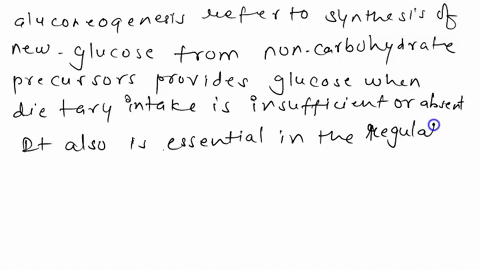 gluconeogenesis refer to synthesis of
new-glucose from non-carbohydrate
precursors provides glucose when
dietary intake is insufficient or absent
It also is essential in the regula